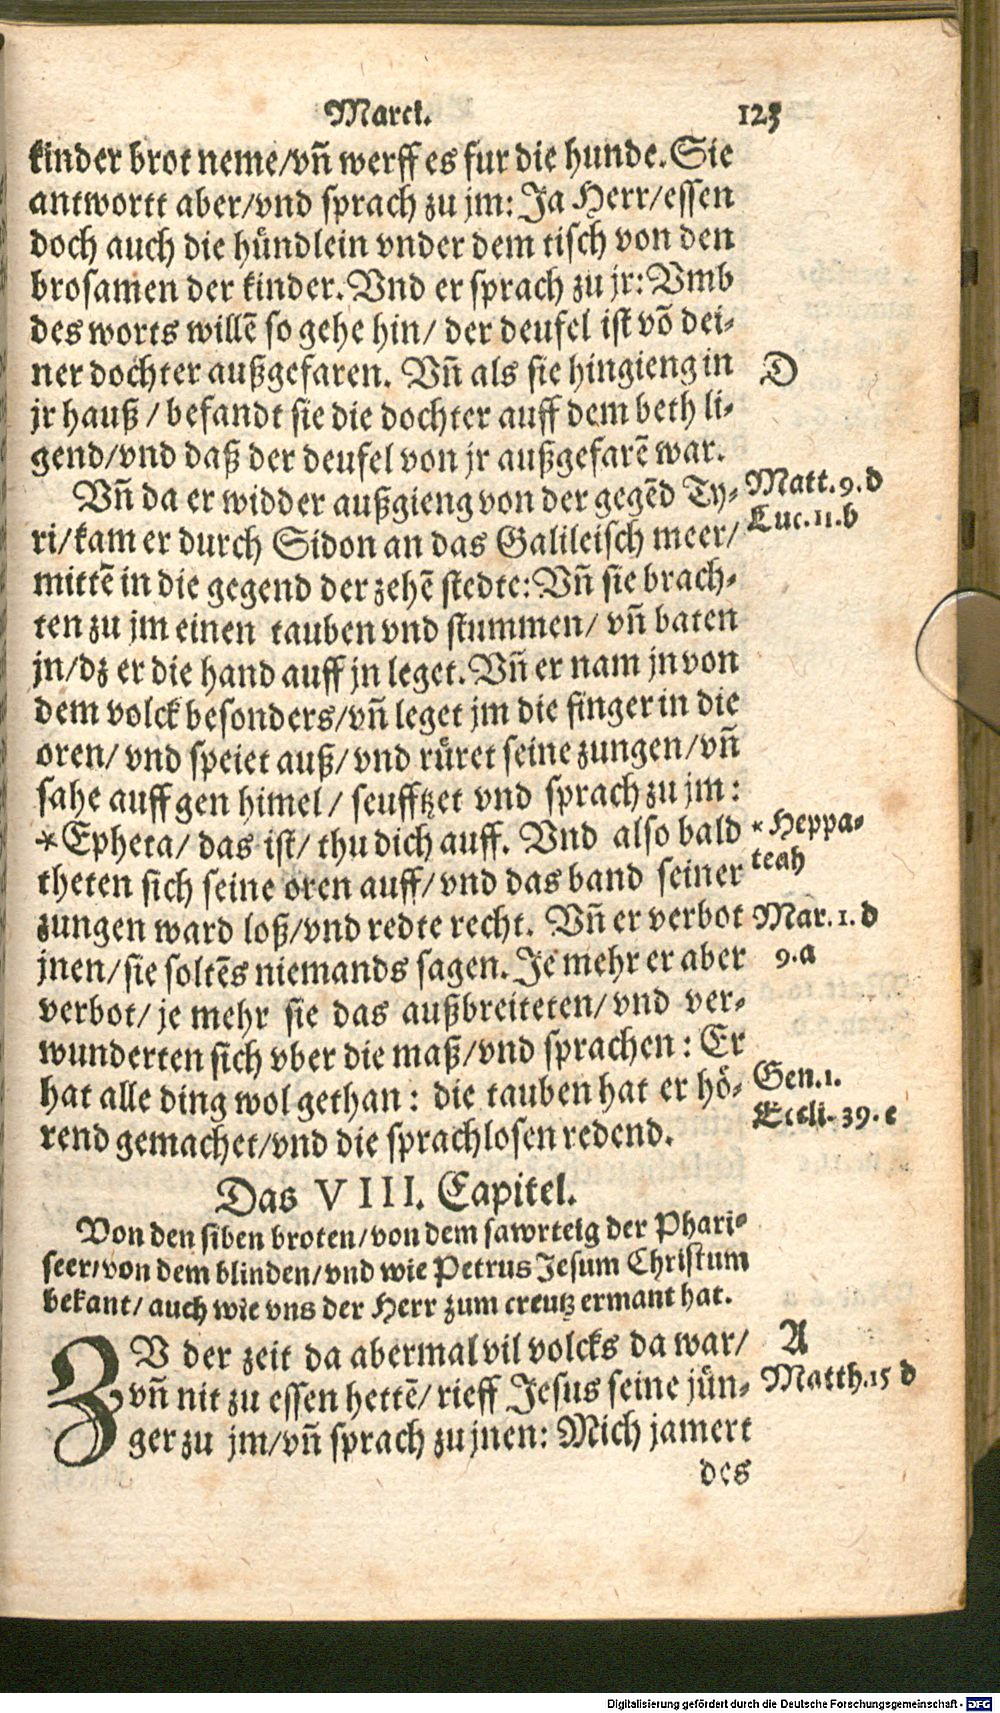 Marck. 123
kinder brot neme/vñ werff es fur die hunde. Sie
antwortt aber/vnd sprach zu jm: Ja Herr/essen
doch auch die hündlein vnder dem tisch von den
brosamen der kinder. Vnd er sprach zu jr: Vmb
des worts willē so gehe hin/ der deufel ist vō dei-
ner dochter außgefaren. Vñ als sie hingieng in
D
jr hauß / befandt sie die dochter auff dem beth li-
gend/vnd daß der deufel von jr außgefarē war.
Vñ da er widder außgieng von der gegēd Ty-
Matt. 9. d
Luc. 11. b
ri/kam er durch Sidon an das Galileisch meer/
mittē in die gegend der zehē stedte: Vñ sie brach-
ten zu jm einen tauben vnd stummen/ vñ baten
jn/dz er die hand auff jn leget. Vñ er nam jn von
dem volck besonders/vñ leget jm die finger in die
oren/ vnd speiet auß/vnd rüret seine zungen/vñ
sahe auff gen himel/ seufftzet vnd sprach zu jm:
*Epheta/ das ist/ thu dich auff. Vnd also bald
* Heppa-
teah
theten sich seine oren auff/vnd das band seiner
zungen ward loß/vnd redte recht. Vñ er verbot
Mar. 1. d
9. a
jnen/sie soltēs niemands sagen. Je mehr er aber
verbot/ je mehr sie das außbreiteten/ vnd ver-
wunderten sich vber die maß/vnd sprachen: Er
hat alle ding wol gethan: die tauben hat er hö-
Gen. 1.
Eccli. 39. c
rend gemachet/vnd die sprachlosen redend.
Das VIII. Capitel.
Von den siben broten/von dem sawrteig der Phari-
seer/von dem blinden/vnd wie Petrus Jesum Christum
bekant/ auch wie vns der Herr zum creutz ermant hat.
ZV der zeit da abermal vil volcks da war/
A
vñ nit zu essen hettē/ rieff Jesus seine jün-
Matth. 15 d
ger zu jm/vñ sprach zu jnen: Mich jamert
des
Digitalisierung gefördert durch die Deutsche Forschungsgemeinschaft - DFG